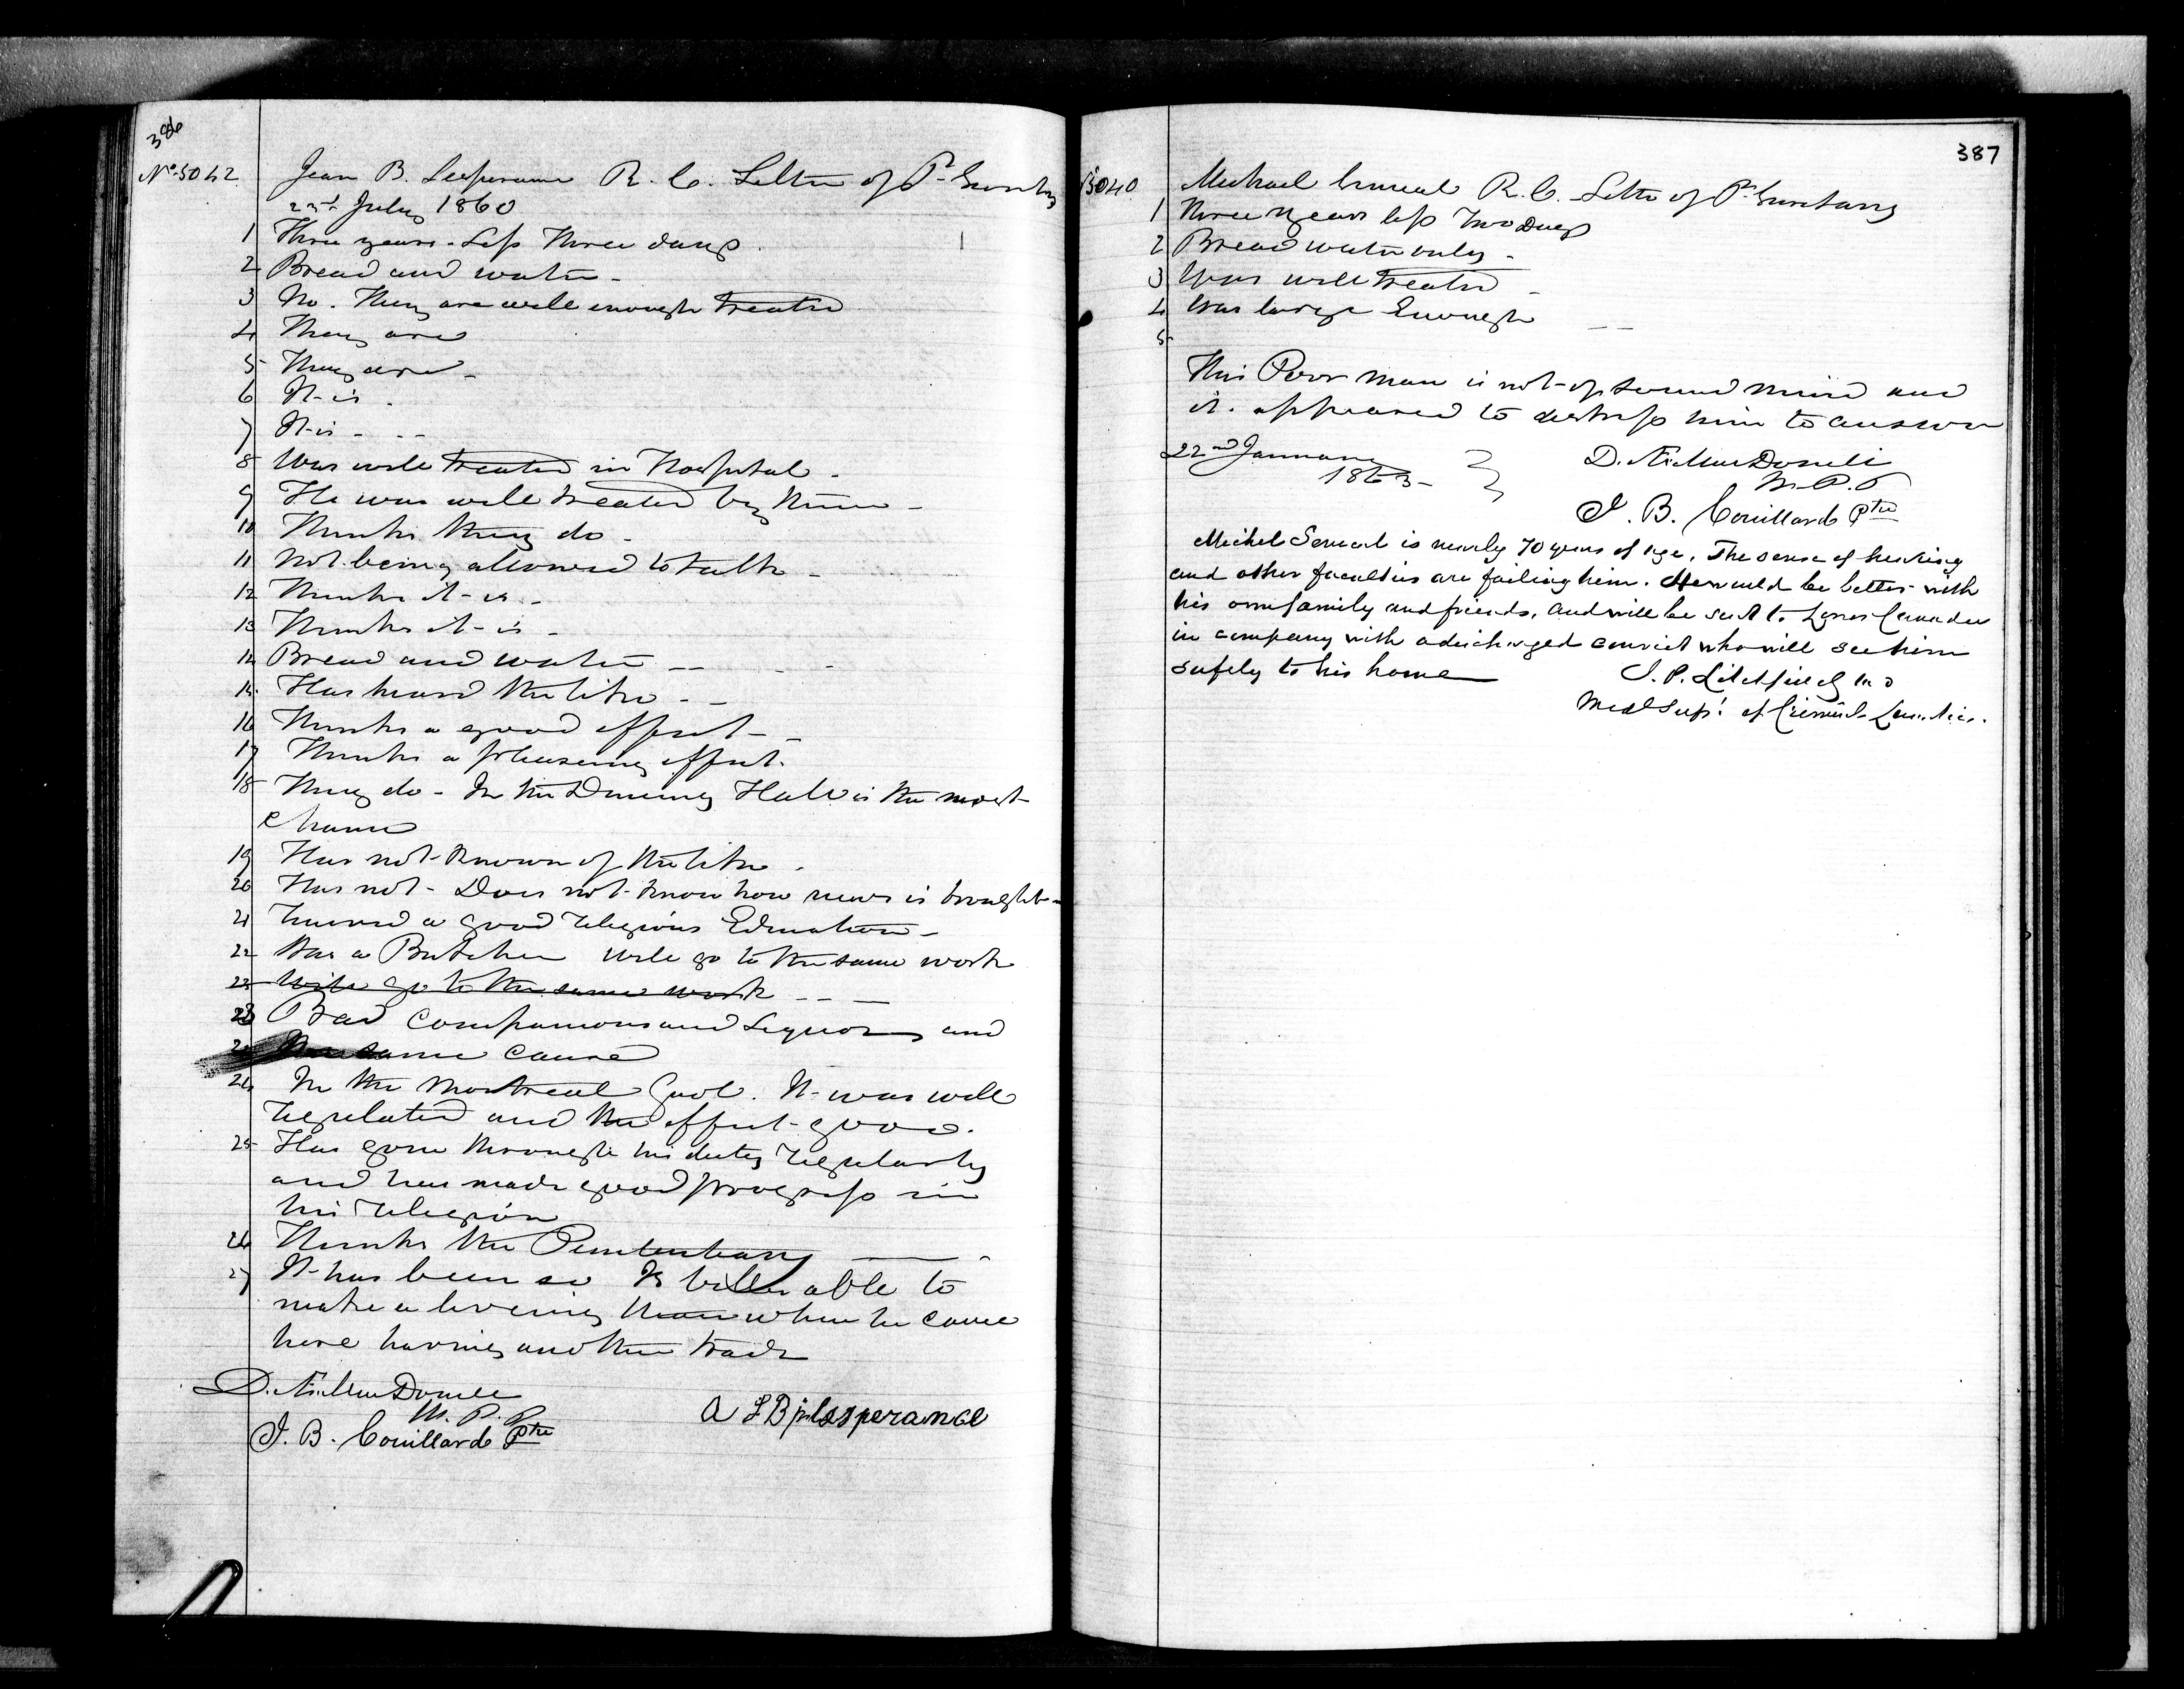 386
No. 5042 Jean B. Lesperance R. C. Letter of P. Secretary
23rd July 1860
1 Three years - Less Three days.
2 Bread and water -
3 No. They are well enough treated
4 They are
5 They are -
6 It is.
7 It is - - -
8 Was well treated in Hospital -
9 He was well treated by him -
10 Thinks they do -
11 Not being allowed to talk -
12 Thinks it is -
13 Thinks it is -
14 Bread and water - - - -
15 Has heard the like - -
16 Thinks a good effect - -
17 Thinks a pleasing effect.
18 They do - In the Dining Hall is the most
chance
19 Has not known of the like -
20 Has not - Does not know how news is brought -
21 Received a good religious Education -
22 Was a Butcher will go to the same work
23 Will go to the same work - - -
23 Bad Companions and Liquors and
same cause
24 In the Montreal Gaol. It was well
regulated and the effect good.
25 Has gone through his duty regularly
and has made good progress in
his religion
26 Thinks the Penitentiary -
27 It has been so Is better able to
make a living than when he came
here having another trade
D. Æ. MacDonell
W. P. P.
J. B. Couillard Ptre
A J B Lesperance
387
5040 Michael R. C. Letter of P. Secretary
1 Three years less Two Days
2 Bread water only -
3 Was well treated -
4 Was large Enough - -
5
This Poor man is not of sound mind and
it appeared to distress him to answer
22nd January
1863 -
D. Æ. MacDonell
W. P. P.
J. B. Couillard Ptre
Michel Senecal is nearly 70 years of age. The sense of hearing
and other faculties are failing him. He would be better with
his own family and friends, and will be sent to Lower Canada
in company with a discharged convict who will see him
safely to his home
J. P. Litchfield M D
Med Supt. of Criminal Lunatics.